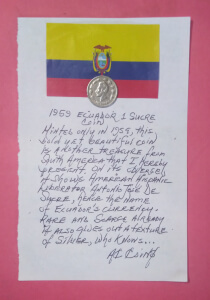 1959 ECUADOR 1 SUCRE
COIN
MINTED ONLY IN 1959, THIS
BOLD YET BEAUTIFUL COIN
IS ANOTHER TREASURE FROM
SOUTH AMERICA THAT I HEREBY
PRESENT. ON ITS OBVERSE
IT SHOWS AMERICAN HISPANIC
LIBERATOR ANTONIO JOSE DE
SUCRE, HENCE THE NAME
OF ECUADOR'S CURRENCY.
RARE AND SCARCE ALREADY
IT ALSO GIVES OUT A TEXTURE
OF SILVER, WHO KNOWS...